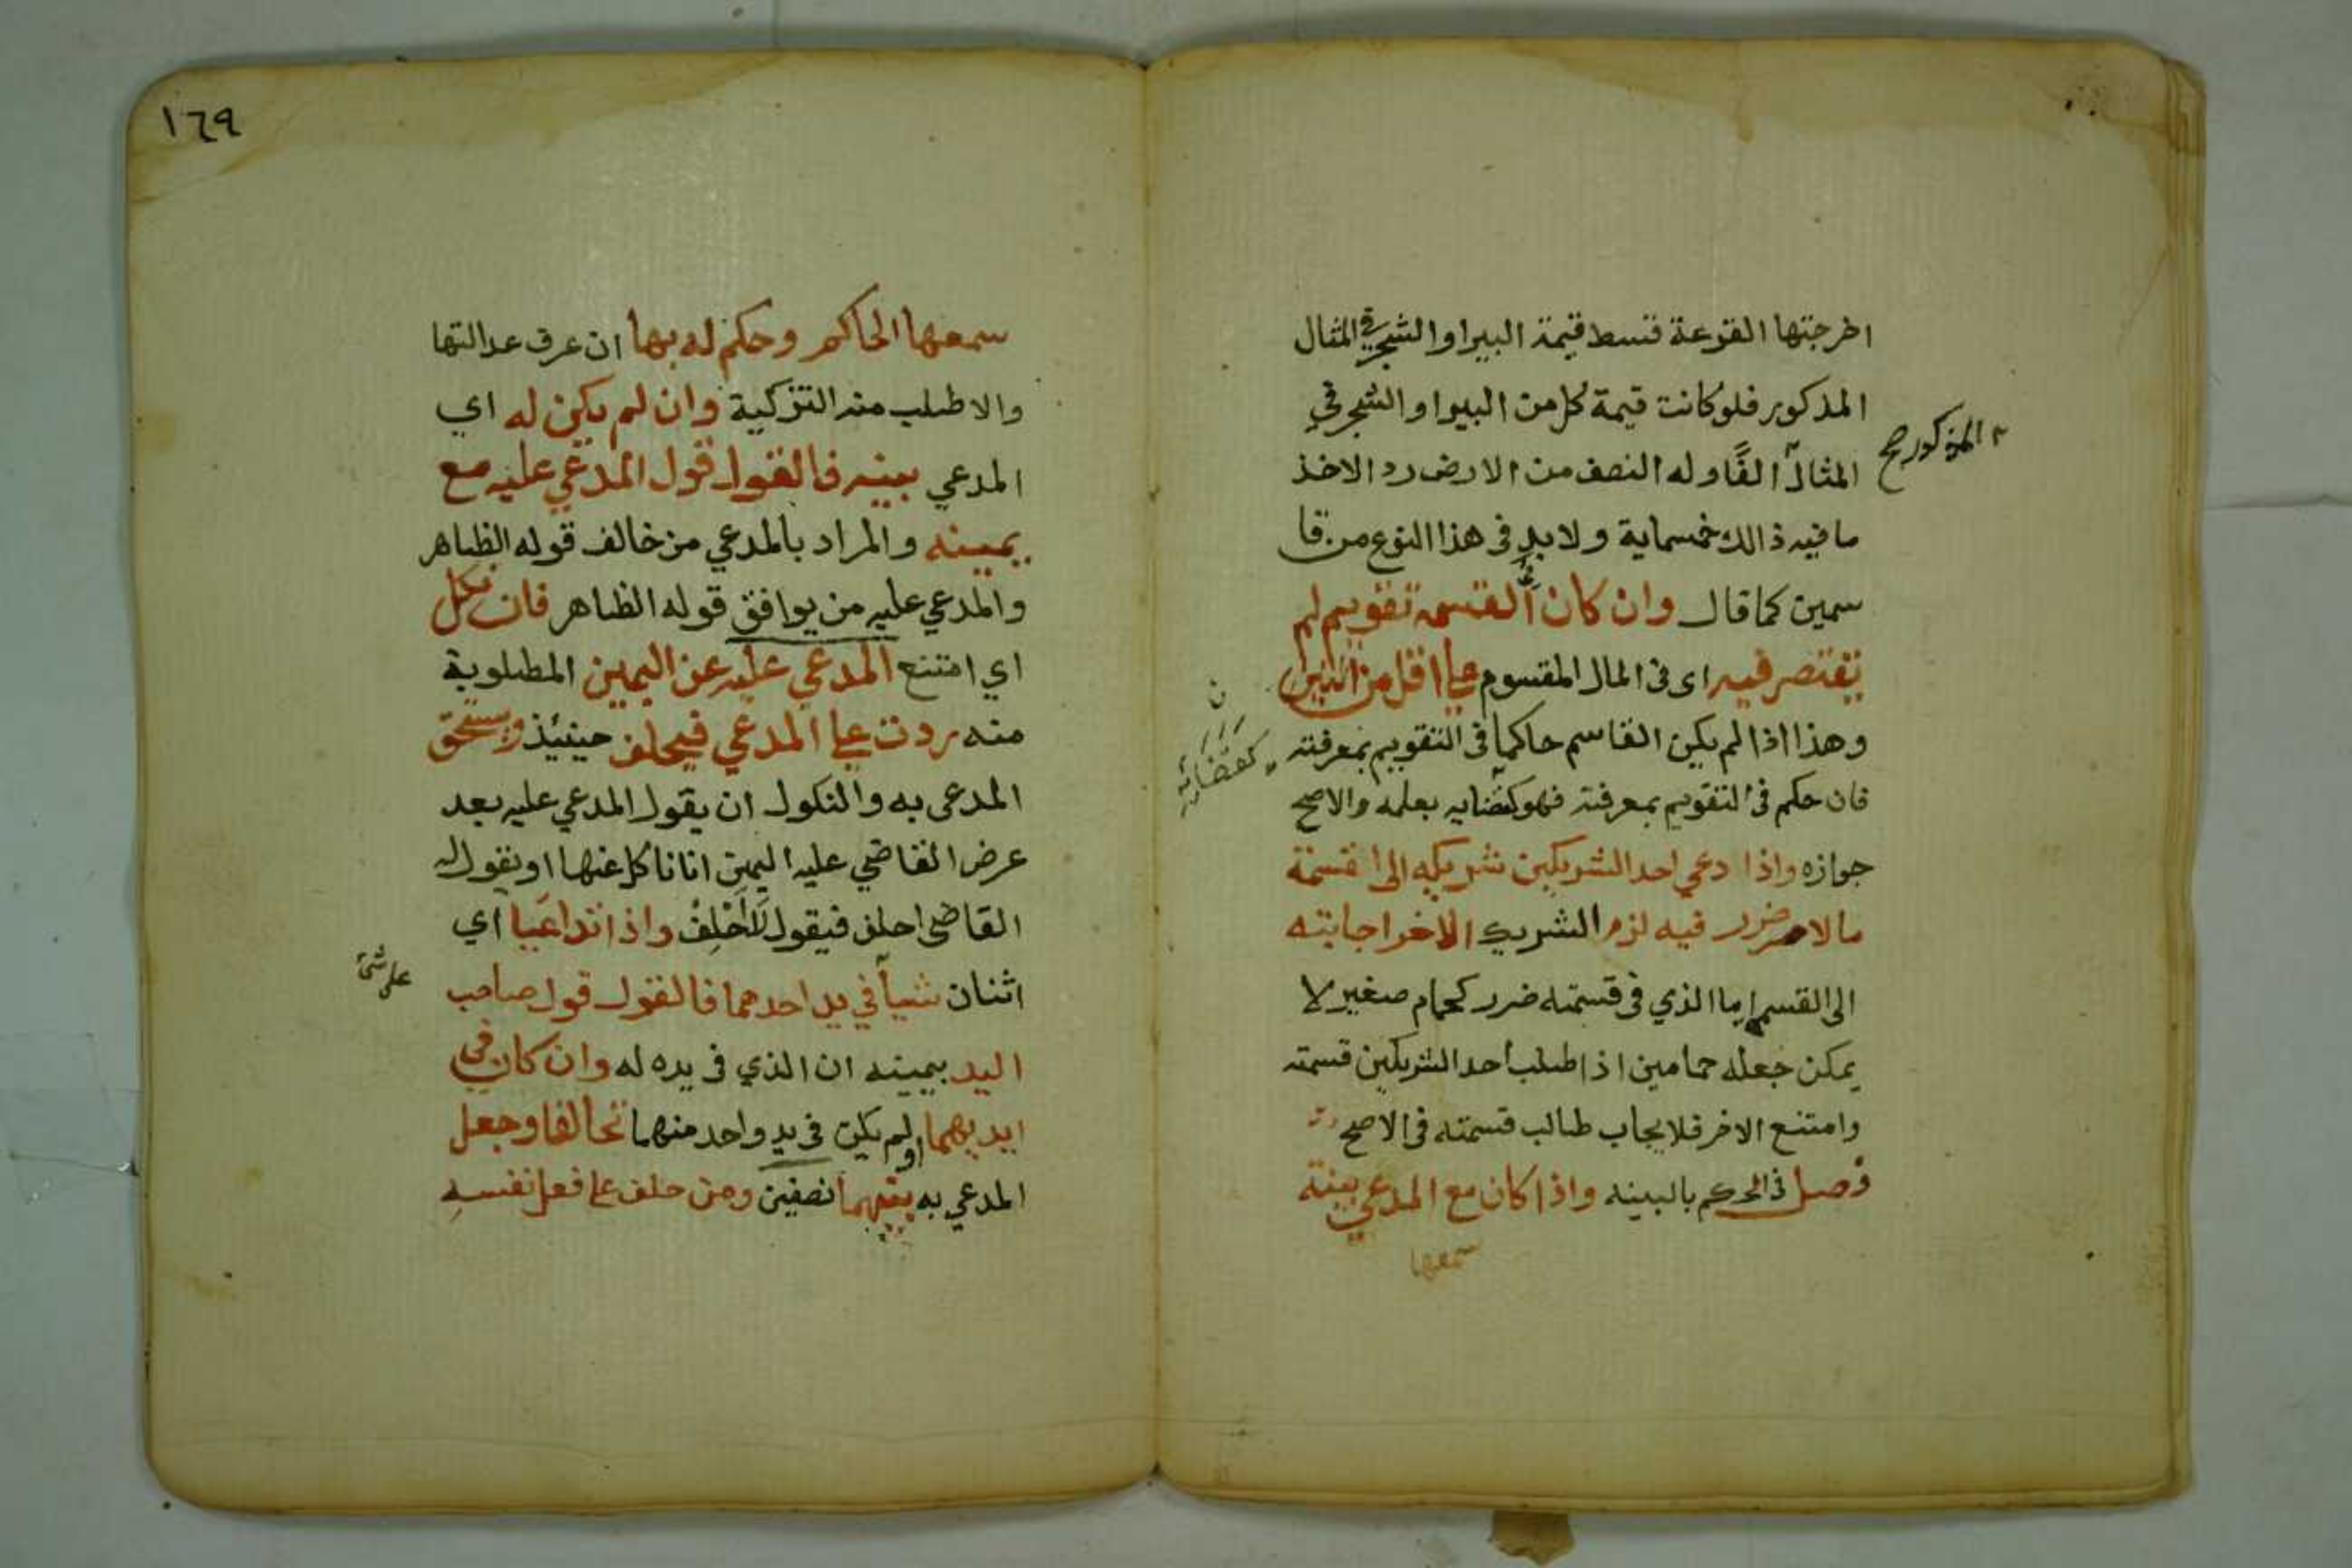 اخرجتها القرعة قسط قيمة البيراو الشجر في المثال
المذكور فلو كانت قيمة كل من البيراو الشجر في
المذكور صح
المثال الفًا وله النصف من الارض رد الاخذ
ما فيه ذالك خمسماية ولا بد في هذا النوع من قا
سمين كما قال وان كان في القسمه تقويم لم
يقتصر فيه اى فى المال المقسوم على اقل من اثنين
وهذا اذا لم يكن القاسم حاكما فى التقويم بمعرفته
فان حكم فى التقويم بمعرفته فهو كقضايه بعلمه والاصح
كقضائه
جوازه واذا دعي احد الشريكين شريكه الى قسمة
ما لا ضرر فيه لزم الشريك الاخر اجابته
الى القسم اما الذي فى قسمته ضرر كحمام صغير لا
يمكن جعله حمامين اذا طلب احد الشريكين قسمته
وامتنع الاخر فلا يجاب طالب قسمته فى الاصح
فصل فى الحكم بالبينه واذا كان مع المدعي بينة
سمعها
١٦٩
سمعها الحاكم وحكم له بها ان عرف عدالتها
والا طلب منه التزكية وان لم يكن له اي
المدعي بينه فالقول قول المدعي عليه مع
يمينه والمراد بالمدعي من خالف قوله الظاهر
والمدعي عليه من يوافق قوله الظاهر فان نكل
اي امتنع المدعي عليه عن اليمين المطلوبة
منه ردت على المدعي فيحلف حينيئذ ويستحق
المدعى به والنكول ان يقول المدعي عليه بعد
عرض القاضي عليه اليمين انا ناكل عنها او يقول له
القاضى احلف فيقول لَا اَحْلِفُ واذا تداعَيا اي
اثنان شياً في يد احدهما فالقول قول صاحب
على شئ
اليد بيمينه ان الذي فى يده له وان كان في
ايديهما او لم يكن فى يد واحد منهما تحالفا وجعل
المدعي به بينهما نصفين ومن حلف على فعل نفسهِ